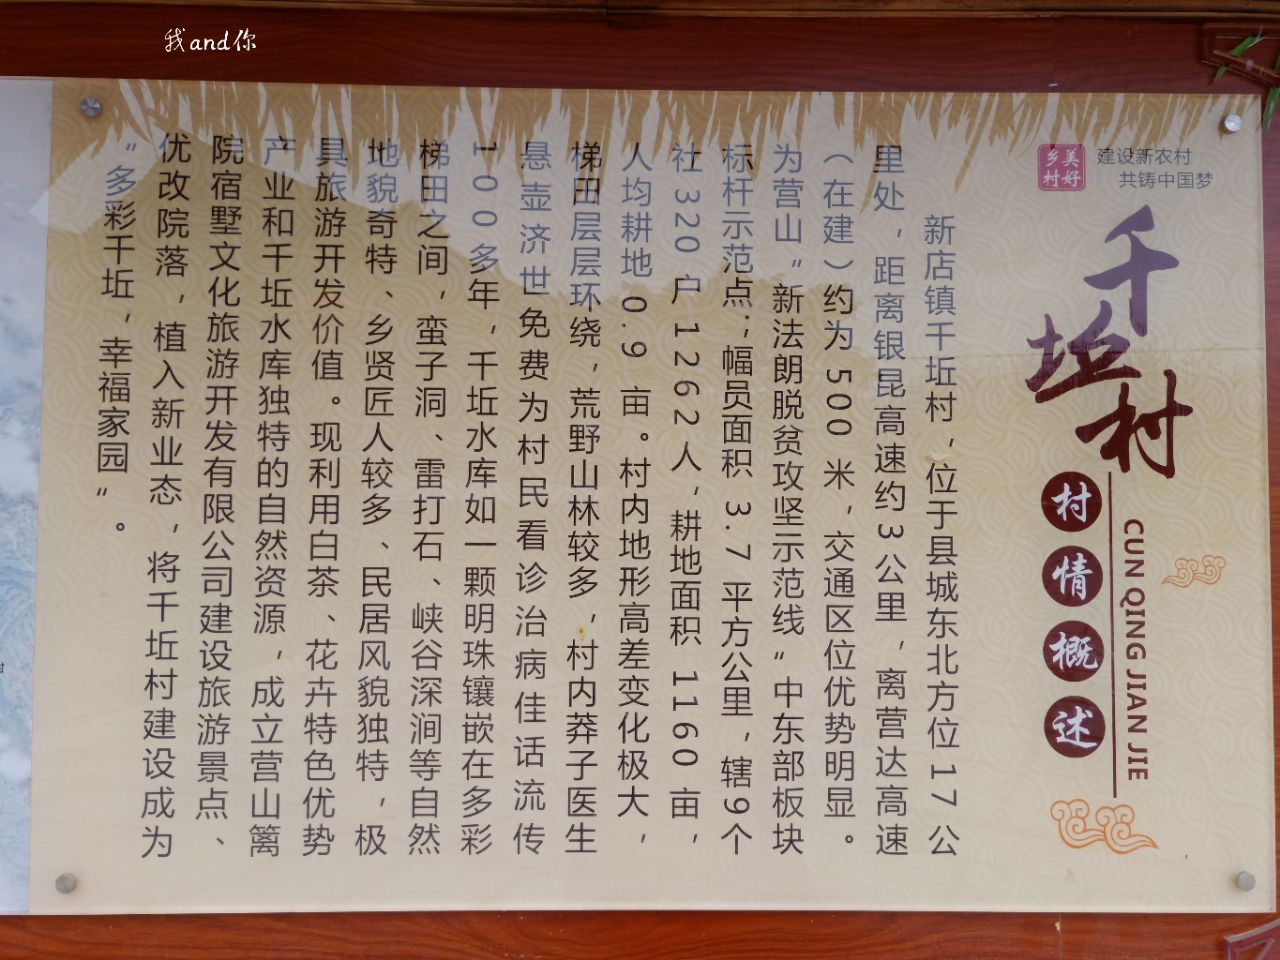 我and你
美好
乡村
建设新农村
共铸中国梦
千坵村
村情概述
CUN QING JIAN JIE
新店镇千坵村，位于县城东北方位17公
里处，距离银昆高速约3公里，离营达高速
（在建）约为500米，交通区位优势明显。
为营山“新法朗脱贫攻坚示范线”中东部板块
标杆示范点；幅员面积3.7平方公里，辖9个
社320户1262人，耕地面积1160亩，
人均耕地0.9亩。村内地形高差变化极大，
梯田层层环绕，荒野山林较多，村内莽子医生
悬壶济世免费为村民看诊治病佳话流传
100多年，千坵水库如一颗明珠镶嵌在多彩
梯田之间，蛮子洞、雷打石、峡谷深涧等自然
地貌奇特、乡贤匠人较多、民居风貌独特，极
具旅游开发价值。现利用白茶、花卉特色优势
产业和千坵水库独特的自然资源，成立营山篱
院宿墅文化旅游开发有限公司建设旅游景点、
优改院落，植入新业态，将千坵村建设成为
“多彩千坵，幸福家园”。